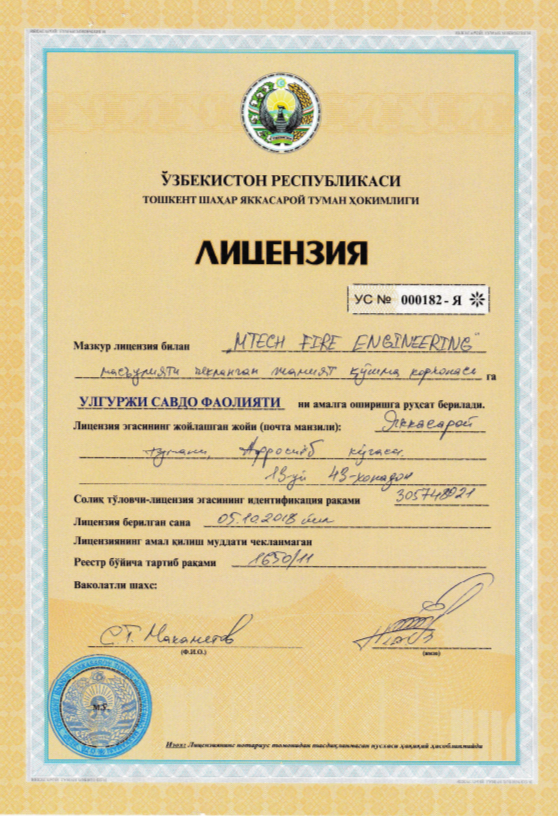 ЎЗБЕКИСТОН РЕСПУБЛИКАСИ
ТОШКЕНТ ШАҲАР ЯККАСАРОЙ ТУМАН ҲОКИМЛИГИ
ЛИЦЕНЗИЯ
УС № 000182 - Я
Мазкур лицензия билан „MTECH FIRE ENGINEERING"
масъулияти чекланган жамият қўшма корхонаси га
УЛГУРЖИ САВДО ФАОЛИЯТИ ни амалга оширишга рухсат берилади.
Лицензия эгасининг жойлашган жойи (почта манзили): Яккасарой
тумани, Афросиёб кўчаси,
13-уй 43-хонадон
Солиқ тўловчи-лицензия эгасининг идентификация рақами 305748921
Лицензия берилган сана 05.10.2018 йил
Лицензиянинг амал қилиш муддати чекланмаган
Реестр бўйича тартиб рақами 1650/11
Ваколатли шахс:
С.Т. Махаметов
(Ф.И.О.) (имзо)
Изоҳ: Лицензиянинг нотариус томонидан тасдиқланмаган нусхаси ҳақиқий ҳисобланмайди